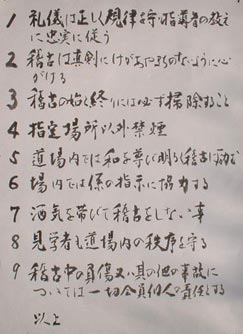 1 礼儀は正しく規律を守り指導者の教え
に忠実に従う
2 稽古は真剣にけがあやまちのないように心
がける
3 稽古の始と終りには必ず掃除すること
4 指定場所以外禁煙
5 道場内では和を尊び明るく稽古に励む
6 場内では係の指示に協力する
7 酒気を帯びて稽古をしない事
8 見学者も道場内の秩序を守る
9 稽古中の負傷又は其の他の事故に
ついては一切会員個人の責任とする
以上